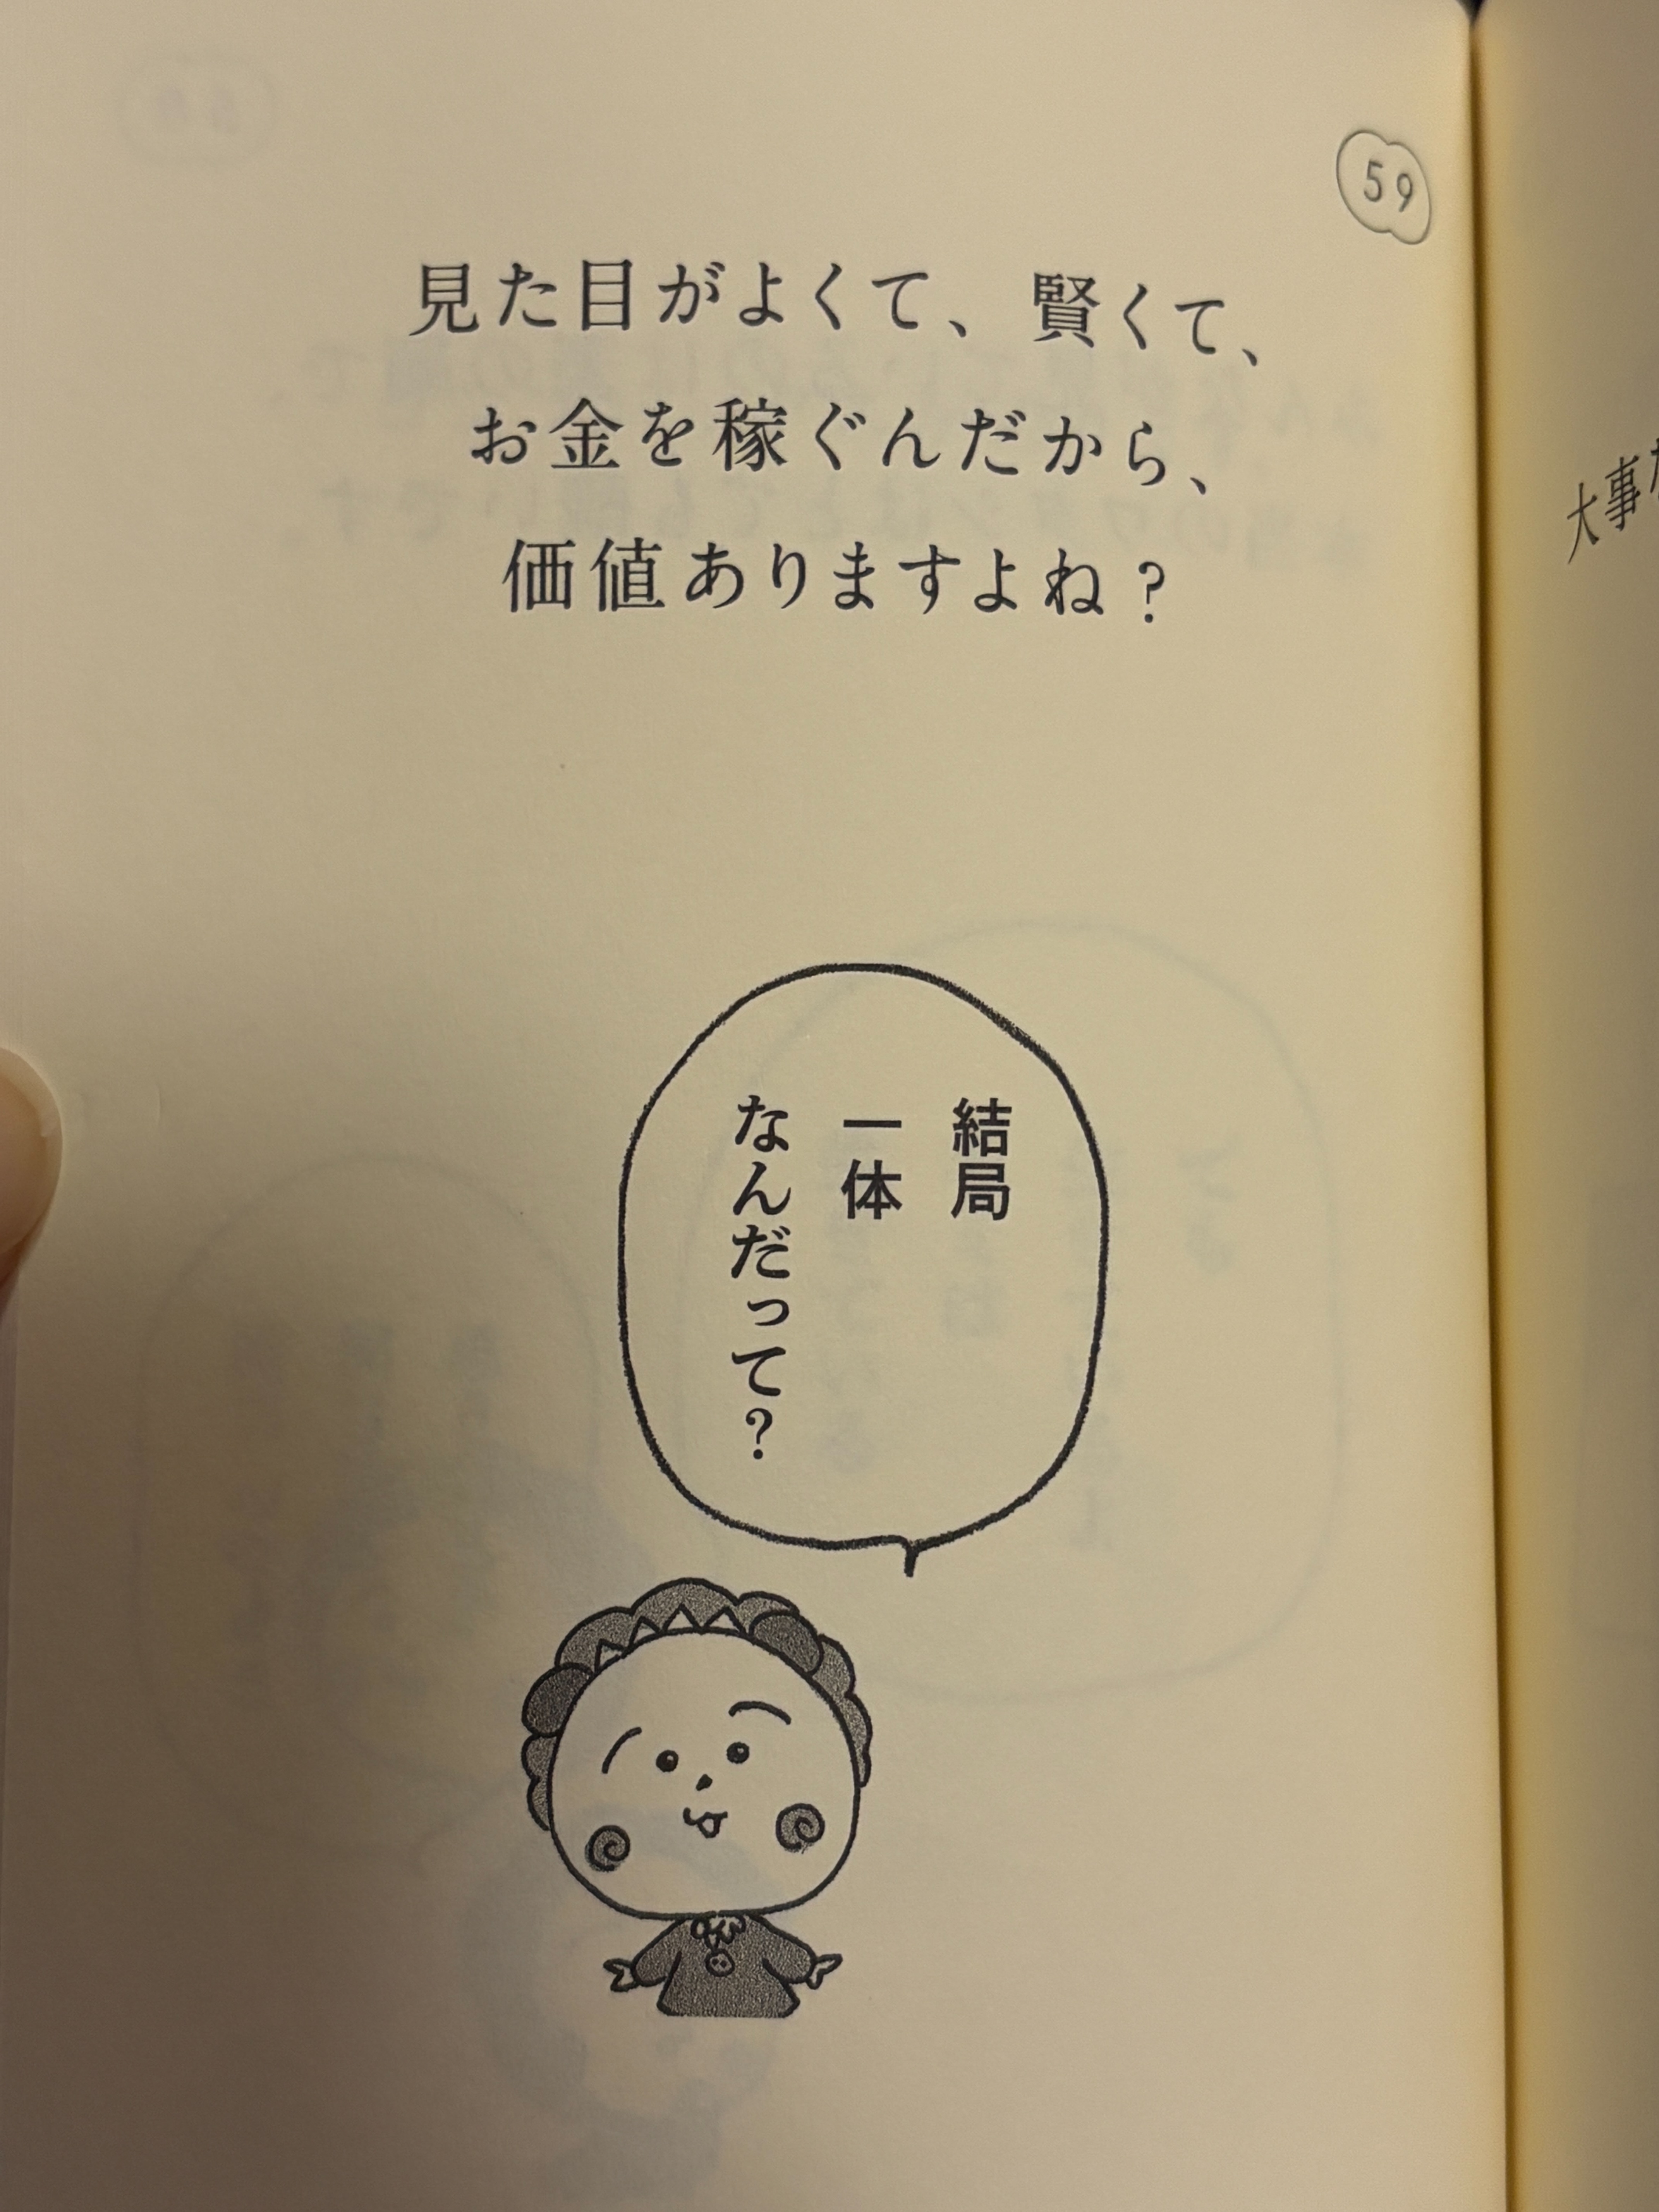 59
見た目がよくて、賢くて、
お金を稼ぐんだから、
価値ありますよね?
結局
一体
なんだって?
大事